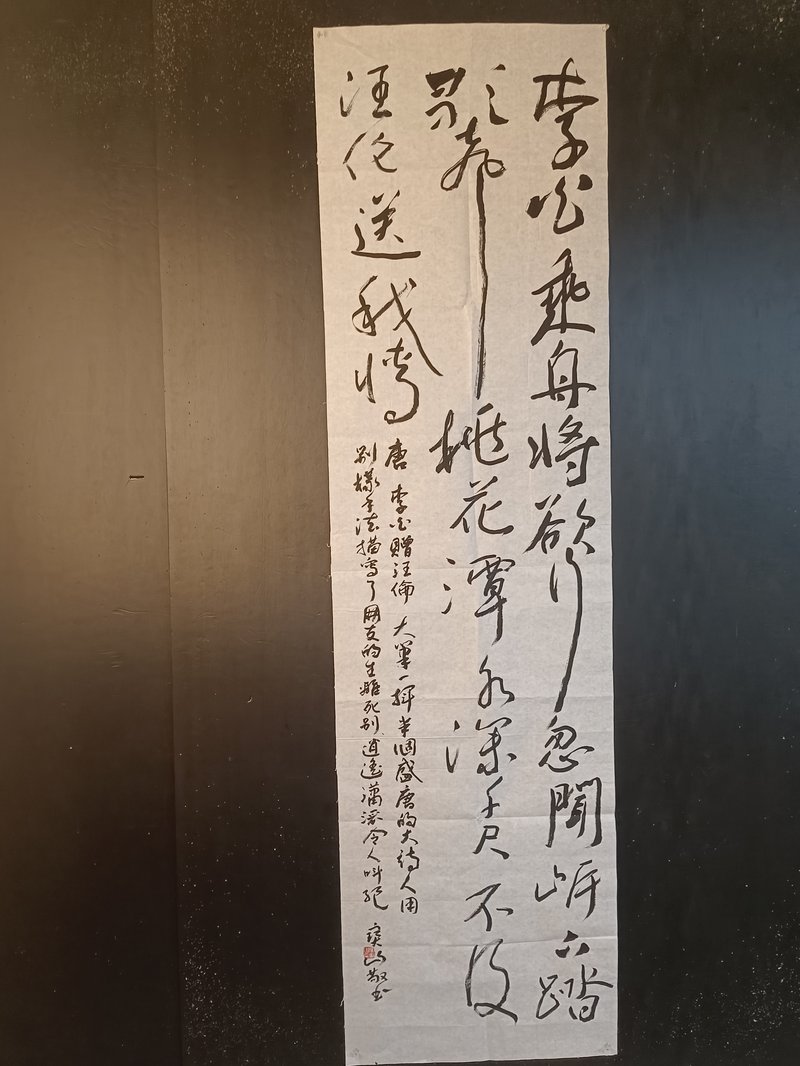 李白乘舟将欲行忽聞岸上踏
歌声桃花潭水深千尺不及
汪伦送我情
唐 李白贈汪倫 大筆一揮半個盛唐的大詩人用
别樣手法描寫了朋友的生離死别逍遙瀟洒令人叫絕
山敬书